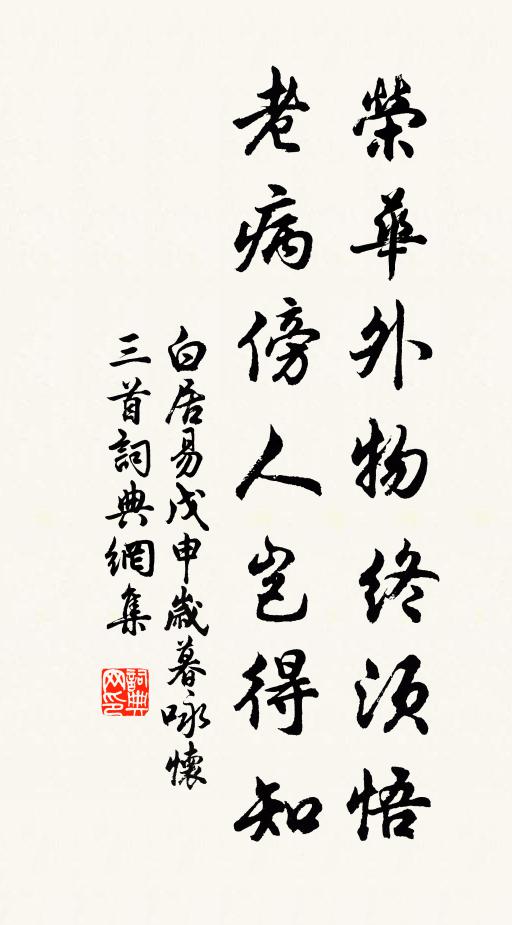 榮華外物終須悟
老病傍人豈得知
白居易戊申歲暮咏懷
三首詞典網集
詞典
网印